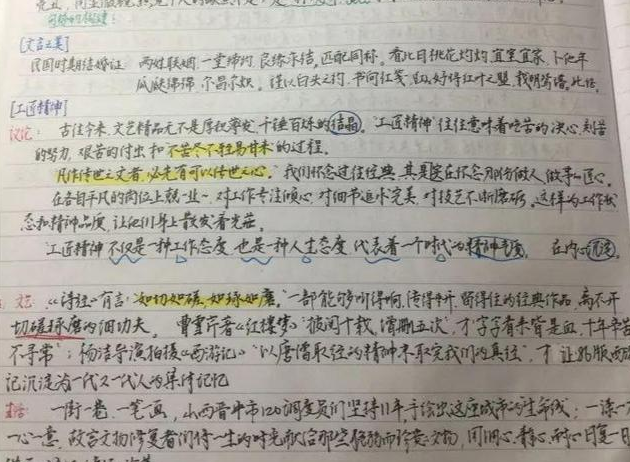 [文言之美]
民国时期结婚证 两姓联姻,一堂缔约,良缘永结,匹配同称。看此日桃花灼灼,宜室宜家,卜他年
瓜瓞绵绵,尔昌尔炽。谨以白头之约,书向红笺,好将红叶之盟,载明鸳谱。此证
[工匠精神]
议论: 古往今来,文艺精品无不是厚积薄发、千锤百炼的结晶。"工匠精神"往往意味着吃苦的决心,刻苦
的努力,艰苦的付出和不苦尽不轻易甘来的过程。
凡作传世之文者,必先有可以传世之心。我们怀念过往经典,其实是在怀念那份做人、做事的匠心。
在各自平凡的岗位上兢一业一,对工作专注倾心,对细节追求完美,对技艺不断磨砺。这样的工作状
态和精神品质,让他们身上散发着光芒。
工匠精神不仅是一种工作态度,也是一种人生态度,代表着一个时代的精神气质。 在内心沉淀
文艺: 《诗经》有言:"如切如磋,如琢如磨。"一部能够叫得响、传得开、留得住的经典作品,离不开
切磋琢磨的细功夫。曹雪芹著《红楼梦》"披阅十载,增删五次",才"字字看来皆是血,十年辛苦
不寻常";杨洁导演拍摄《西游记》"以唐僧取经的精神来取完我们的真经",才让86版西游
记沉淀为一代又一代人的集体记忆
一街一巷,一笔一画,山西晋中市120调度员们坚持11年,手绘出这座城市的生命线;一
一心一意,故宫文物修复者们将一生的时光献给那些脆弱而珍贵文物,用细心、静心、耐心日复一日